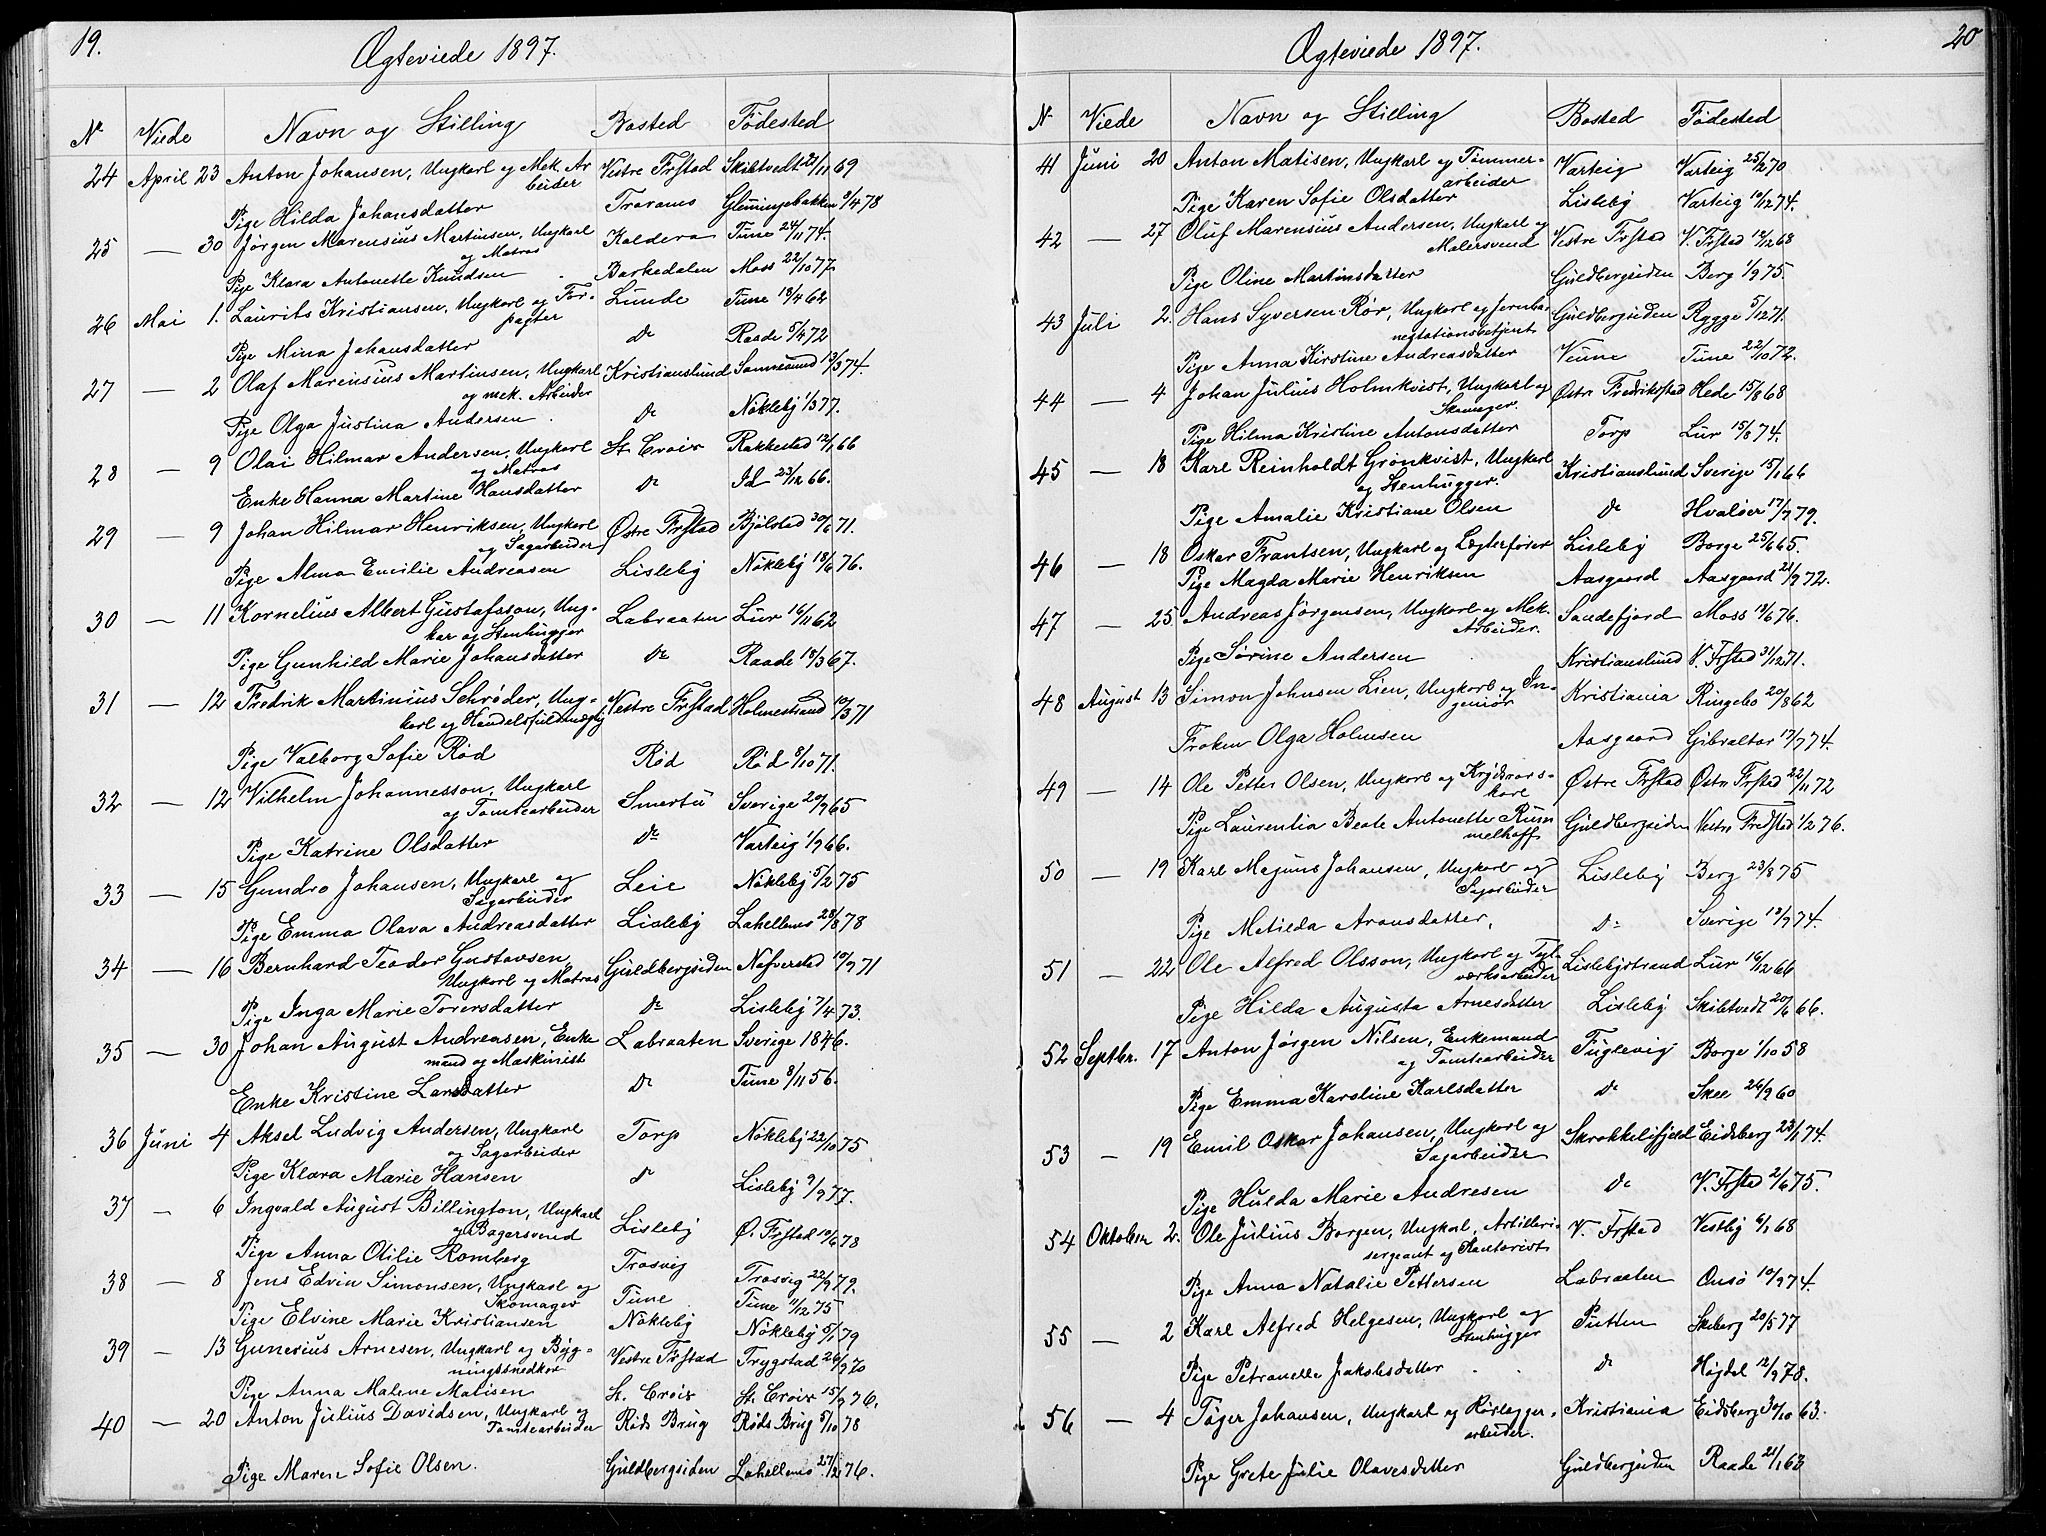 19.
Ægteviede 1897.
N. Viede Navn og Stilling Bosted Fødested
24 April 23 Anton Johansen, Ungkarl og Mek. Ar Vestre Frstad Skibtvedt 21/11 69
beider
Pige Hilda Johansdatter Traraas Glemingebakken 9/4 78
25 — 30 Jørgen Marensius Martinsen, Ungkarl Kaldera Tune 24/11 74.
og Matros
Pige Klara Antonette Knudsen Barkedalen Moss 22/10 77
26 Mai 1. Laurits Kristiansen, Ungkarl og For- Lunde Tune 18/4 62
pagter
Pige Mina Johansdatter Do Raade 5/4 72
27 — 2 Olaf Marensius Martinsen, Ungkarl Kristianslund Sannesund 13/3 74.
og mek. Arbeider
Pige Olga Justina Andersen Do Nøkleby 1/3 77.
28 — 9 Olai Hilmar Andersen, Ungkarl St. Croix Rakkestad 12/1 66
og Matros
Enke Hanna Martine Hansdatter Do Id 23/12 66.
29 — 9 Johan Hilmar Henriksen, Ungkarl Østre Frstad Bjølstad 30/6 71.
og Sagarbeider
Pige Alma Emilie Andreasen Lisleby Nøkleby 18/6 76.
30 — 11 Kornelius Albert Gustafsson, Ung- Labraaten Lur 16/11 62
kar og Stenhugger
Pige Gunhild Marie Johansdatter Do Raade 18/3 67.
31 — 12 Fredrik Martinius Schrøder, Ung- Vestre Frstad Holmestrand 10/3 71
karl og Handelsfuldmægtig
Pige Valborg Sofie Rød Rød Rød 8/10 71.
32 — 12 Vilhelm Johannesson, Ungkarl Smertu Sverige 20/9 65
og Tomtearbeider
Pige Katrine Olsdatter Do Varteig 1/9 66.
33 — 15 Gundro Johansen, Ungkarl og Leie Nøkleby 5/2 75
Sagarbeider
Pige Emma Olava Andreasdatter Lisleby Lahellemo 28/8 78
34 — 16 Bernhard Teodor Gustavsen Guldbergsiden Nafverstad 10/9 71
Ungkarl og Matros
Pige Inga Marie Torersdatter Do Lisleby 7/4 73.
35 — 30 Johan August Andreasen, Enke Labraaten Sverige 1846.
mand og Maskinist
Enke Kristine Larsdatter Do Tune 8/11 56.
36 Juni 4 Aksel Ludvig Andersen, Ungkarl Torp Nøkleby 22/10 75
og Sagarbeider
Pige Klara Marie Hansen Do Lisleby 9/9 77.
37 — 6 Ingvald August Billington, Ungkarl Lisleby Ø. Frstad 10/6 78
og Bagersvend
Pige Anna Otilie Romberg Trosvig Trosvig 22/9 79.
38 — 8 Jens Edvin Simonsen, Ungkarl og Tune Tune 11/12 75
Skomager
Pige Elvine Marie Kristiansen Nøkleby Nøkleby 5/1 79
39 — 13 Gunerius Arnesen, Ungkarl og Byg- Vestre Frstad Trygstad 26/9 70
ningssnedker
Pige Anna Malene Matisen St. Croix St. Croix 15/9 76.
40 — 20 Anton Julius Davidsen, Ungkarl og Røds Brug Røds Brug 5/10 78
Tomtearbeider
Pige Maren Sofie Olsen. Guldbergsiden Lahellemo 27/2 76.
20
Ægteviede 1897.
N Viede Navn og Stilling Bosted Fødested
41 Juni 20 Anton Matisen, Ungkarl og Tømmer- Varteig Varteig 25/2 70
arbeider
Pige Karen Sofie Olsdatter Lisleby Varteig 10/12 74.
42 — 27 Oluf Marensius Andersen, Ungkarl og Vestre Frstad V. Frstad 12/12 68
Malersvend
Pige Oline Martinsdatter Guldbergsiden Berg 1/9 75
43 Juli 2. Hans Syversen Rør, Ungkarl og Jernba- Guldbergsiden Rygge 5/12 71.
nestationsbetjent
Pige Anna Kirstine Andreasdatter Veum Tune 22/10 72.
44 — 4 Johan Julius Holmkvist, Ungkarl og Østre Fredrikstad Hede 15/8 68
Skomager.
Pige Hilma Kristine Antonsdatter Torp Lur 15/8 74.
45 — 18 Karl Reinholdt Grønkvist, Ungkarl Kristianslund Sverige 15/1 66
og Stenhugger.
Pige Amalie Kristiane Olsen Do Hvaløer 17/9 79.
46 — 18 Oskar Frantsen, Ungkarl og Lægterfører Lisleby Borge 25/6 65.
Pige Magda Marie Henriksen Aasgaard Aasgaard 21/9 72.
47 — 25 Andreas Jørgensen, Ungkarl og Mek. Sandefjord Moss 19/6 76.
Arbeider.
Pige Sørine Andersen Kristianslund V. Frstad 31/12 71.
48 August 13 Simon Johnsen Lien, Ungkarl og In- Kristiania Ringebo 20/8 62
geniør
Frøken Olga Holmsen Aasgaard Gibraltar 17/7 74.
49 — 14 Ole Petter Olsen, Ungkarl og Krydsvors- Østre Frstad Østre Frstad 22/11 72
karl
Pige Laurentia Beate Antonette Rum Guldbergsiden Vestre Fredstad 1/2 76.
melhoff
50 — 19 Karl Magnus Johansen, Ungkarl og Lisleby Berg 23/8 75
Sagarbeider
Pige Matilda Aronsdatter, Do Sverige 18/9 74.
51 — 22 Ole Alfred Olsson, Ungkarl og Tegl- Lislebystrand Lur 16/12 66
værksarbeider
Pige Hilda Augusta Arnesdatter Lisleby Skibtvedt 20/6 66.
52 Septbr. 17 Anton Jørgen Nilsen, Enkemand Fuglevig Borge 1/10 58
og Tomtearbeider
Pige Emma Karoline Karlsdatter Do Skee 26/9 60
53 — 19 Emil Oskar Johansen, Ungkarl og Skrokkelifjeld Eidsberg 23/1 74.
Sagarbeider
Pige Hulda Marie Andresen Do V. Frstad 2/6 75.
54 Oktober 2. Ole Julius Borgen, Ungkarl, Artilleri- V. Frstad Vestby 6/1 68
sergeant og Kontorist
Pige Anna Natalie Pettersen Labraaten Onsø 10/9 74.
55 — 2 Karl Alfred Helgesen, Ungkarl og Putten Skeberg 20/5 77
Stenhugger
Pige Petranelle Jakobsdatter Do Høgdal 12/9 78.
56 — 4 Tøger Johansen, Ungkarl og Rørlægger- Kristiania Eidsberg 30/10 63.
arbeider.
Pige Grete Julie Olavesdatter Guldbergsiden Raade 21/1 63